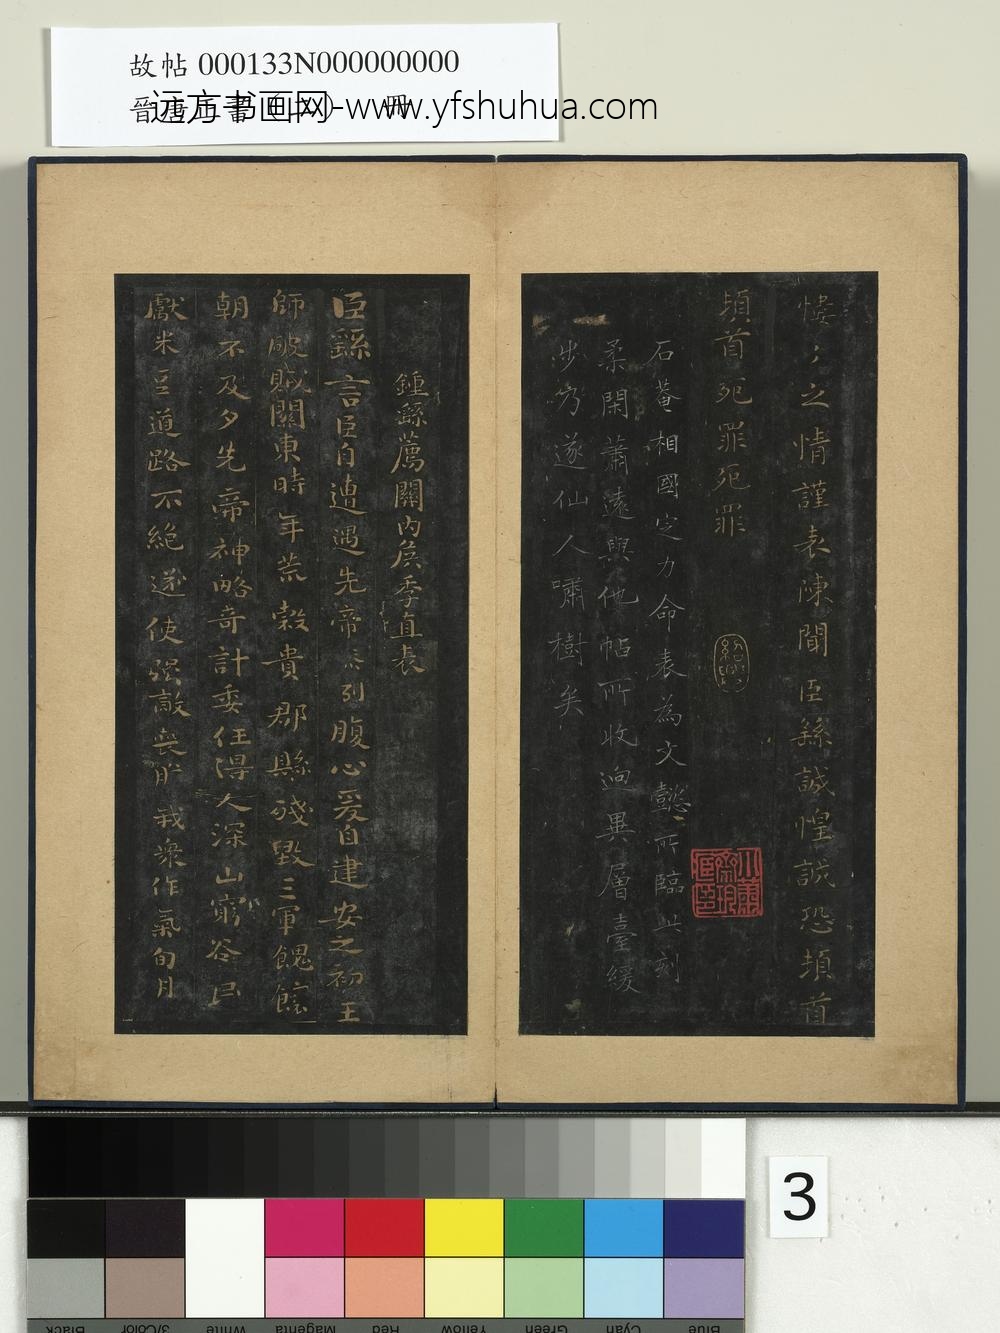 故帖 000133N000000000
远方书画网-www.yfshuhua.com
冊
慺〻之情謹表陳聞臣繇誠惶誠恐頓首
頓首死罪死罪
石菴相國定力命表為文懿所臨此刻
柔閑蕭遠與他帖所收迥異層臺緩
步乃遂仙人嘯樹矣
鍾繇薦關內侯季直表
臣繇言臣自遭遇先帝忝列腹心爰自建安之初王
師破賊關東時年荒穀貴郡縣殘毀三軍餽饟
朝不及夕先帝神略奇計委任得人深山窮谷民
獻米豆道路不絕遂使强敵喪膽我衆作氣旬月
3
Black
3/Color
White
Magenta
Red
Yellow
Green
Cyan
Blue